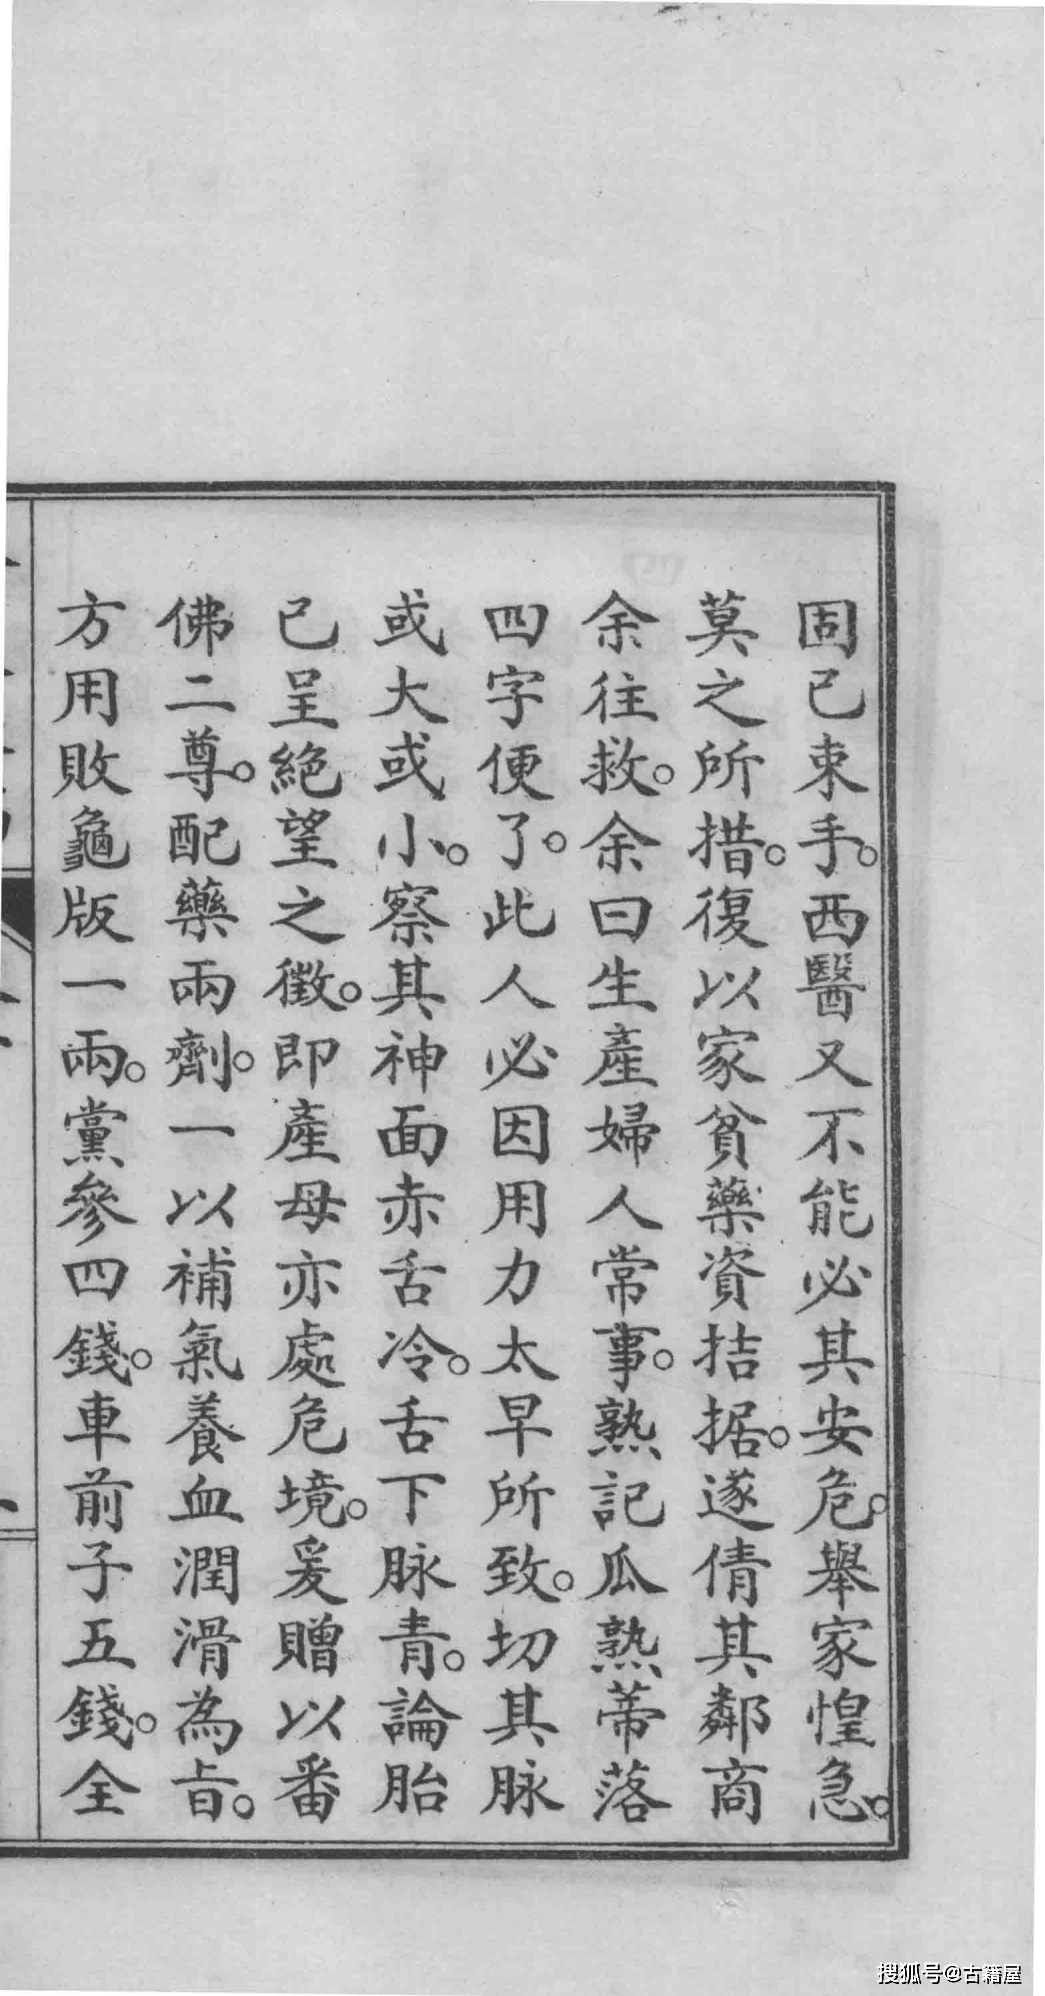 固已束手。西醫又不能必其安危。舉家惶急。
莫之所措。復以家貧藥資拮据。遂倩其鄰商
余往救。余曰生產婦人常事。熟記瓜熟蒂落
四字便了。此人必因用力太早所致。切其脉
或大或小。察其神面赤舌冷。舌下脉青。論胎
已呈絕望之徵。即產母亦處危境。爰贈以番
佛二尊。配藥兩劑。一以補氣養血潤滑為旨。
方用敗龜版一兩。黨參四錢。車前子五錢。全
搜狐号@古籍屋